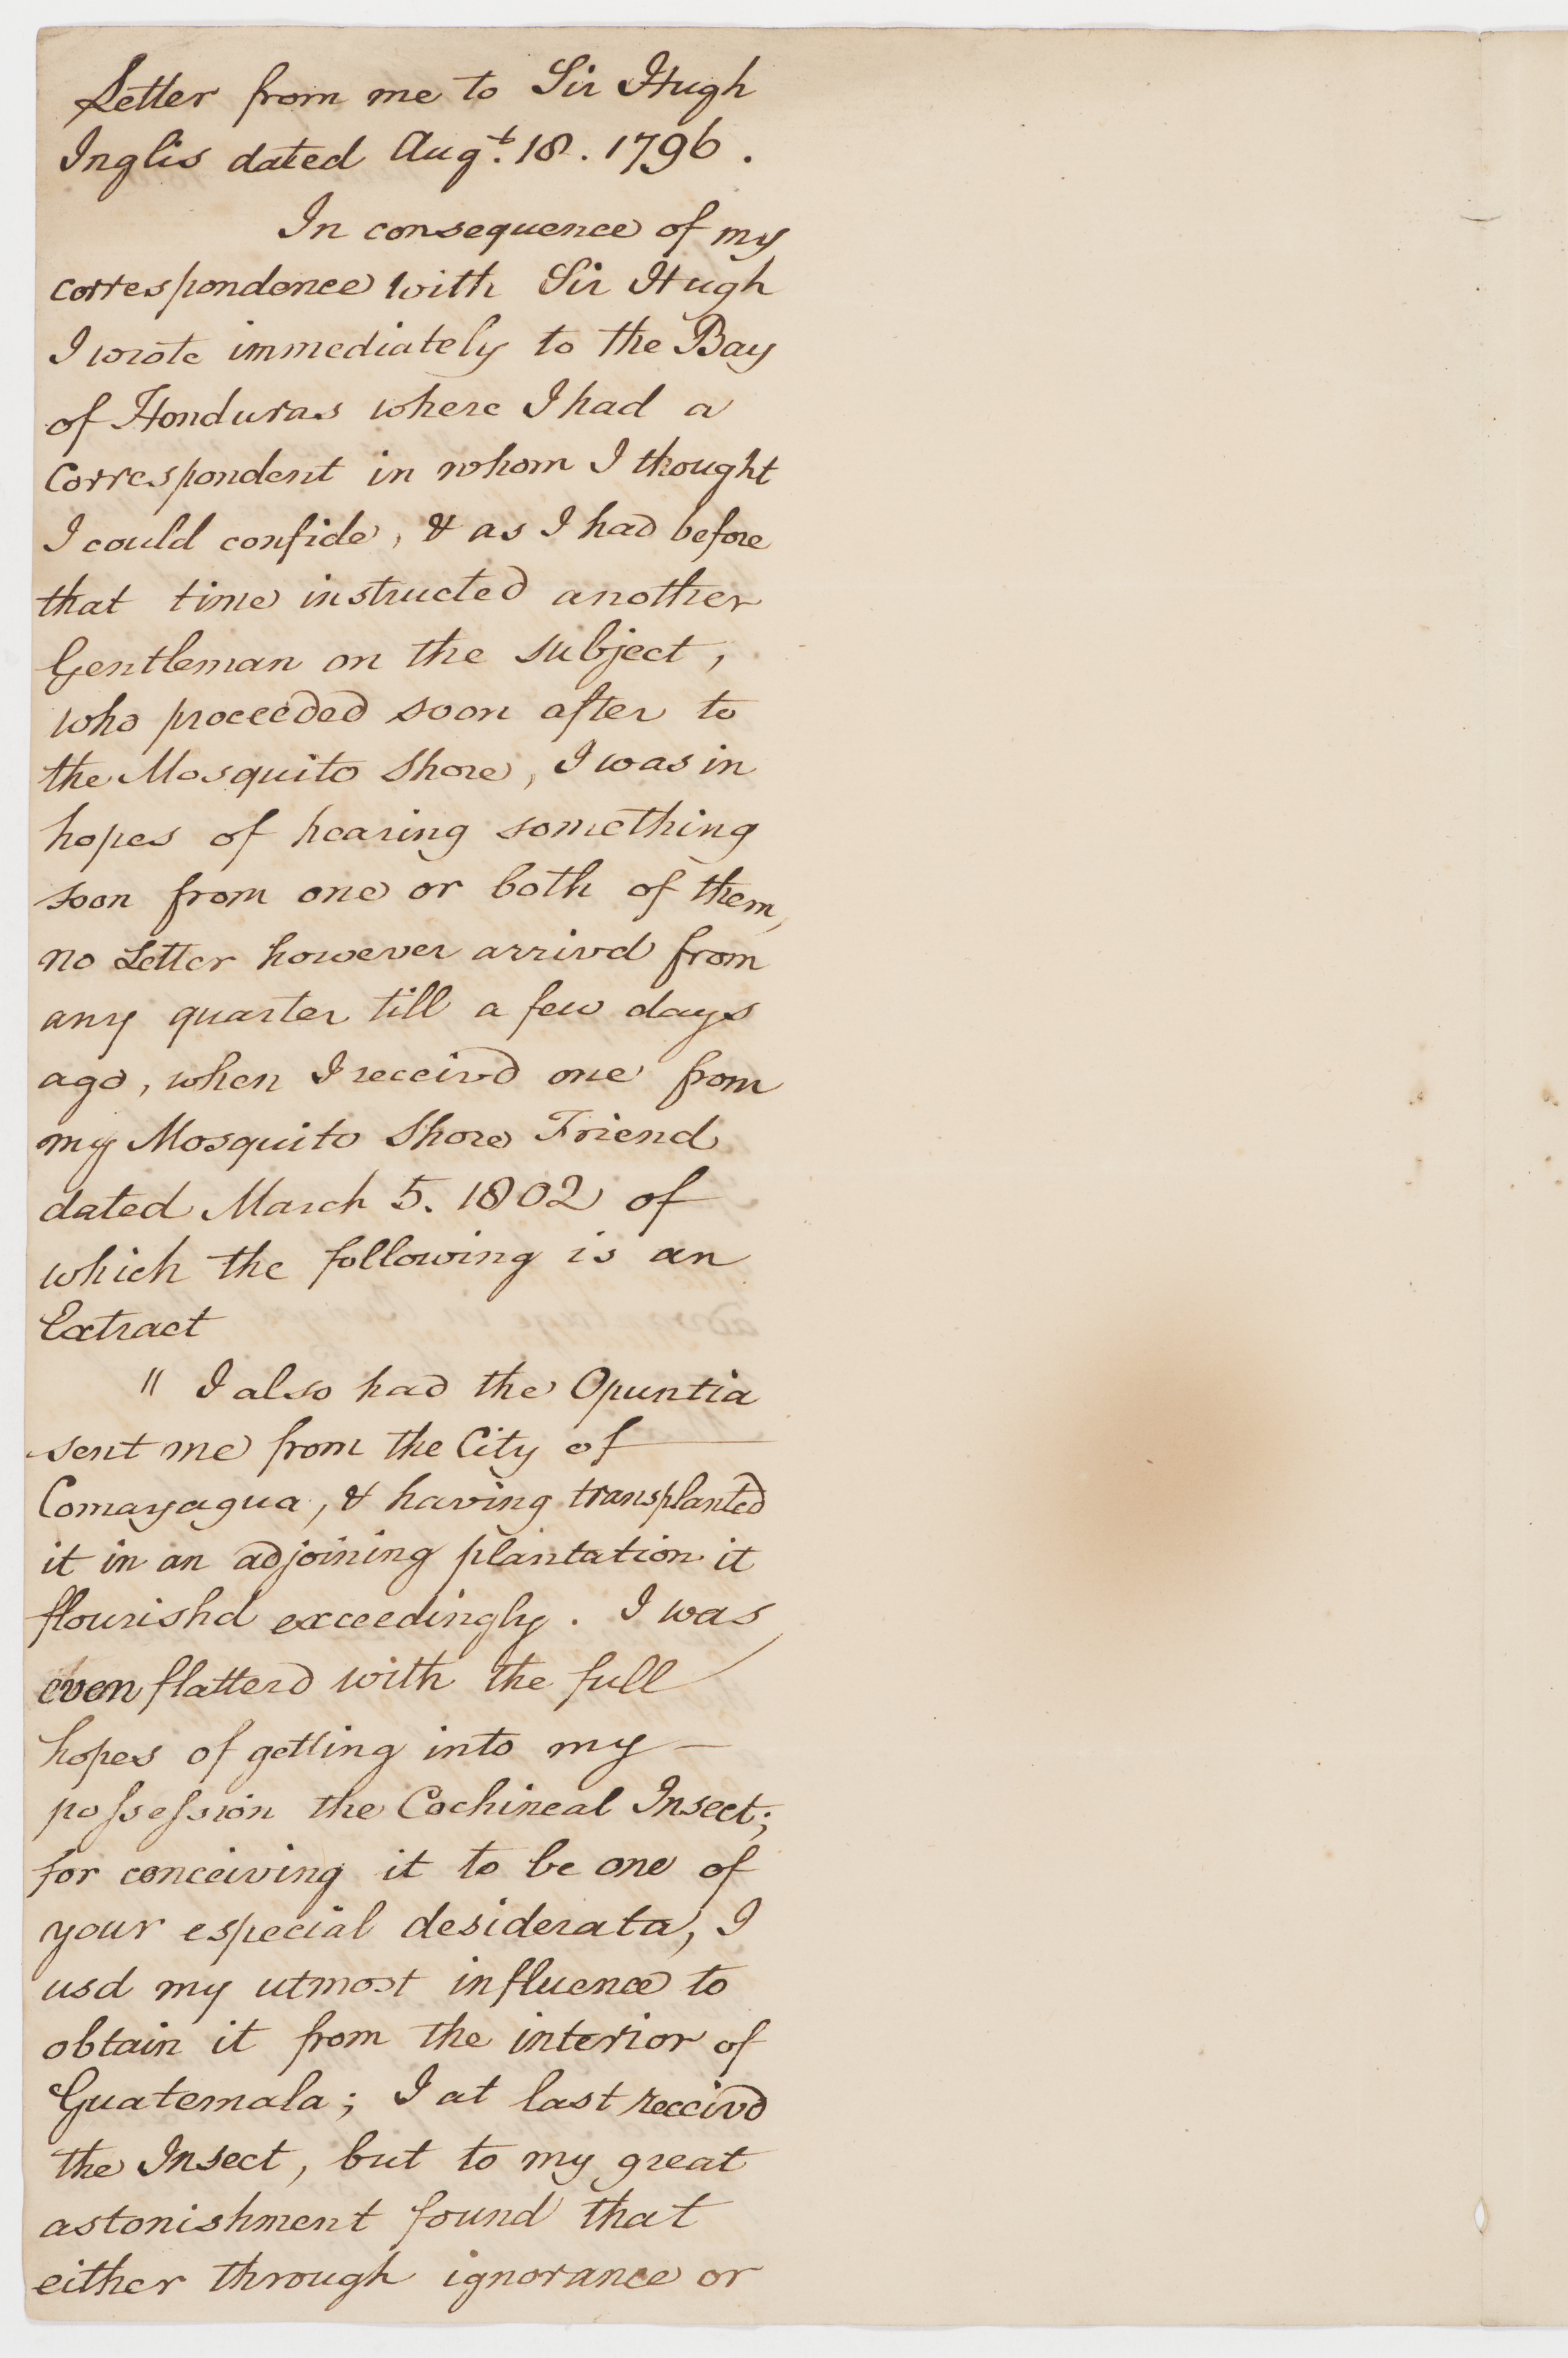 Letter from me to Sir Hugh
Inglis dated Augt. 18. 1796.
In consequence of my
correspondence with Sir Hugh
I wrote immediately to the Bay
of Honduras where I had a
Correspondent in whom I thought
I could confide, & as I had before
that time instructed another
Gentleman on the subject,
who proceeded soon after to
the Mosquito Shore, I was in
hopes of hearing something
soon from one or both of them,
no Letter however arrivd from
any quarter till a few days
ago, when I receivd one from
my Mosquito Shore Friend
dated March 5. 1802 of
which the following is an
Extract
" I also had the Opuntia
sent me from the City of
Comayagua, & having transplanted
it in an adjoining plantation it
flourishd exceedingly. I was
even flatterd with the full
hopes of getting into my —
possession the Cochineal Insect;
for conceiving it to be one of
your especial desiderata, I
usd my utmost influence to
obtain it from the interior of
Guatemala; I at last receivd
the Insect, but to my great
astonishment found that
either through ignorance or